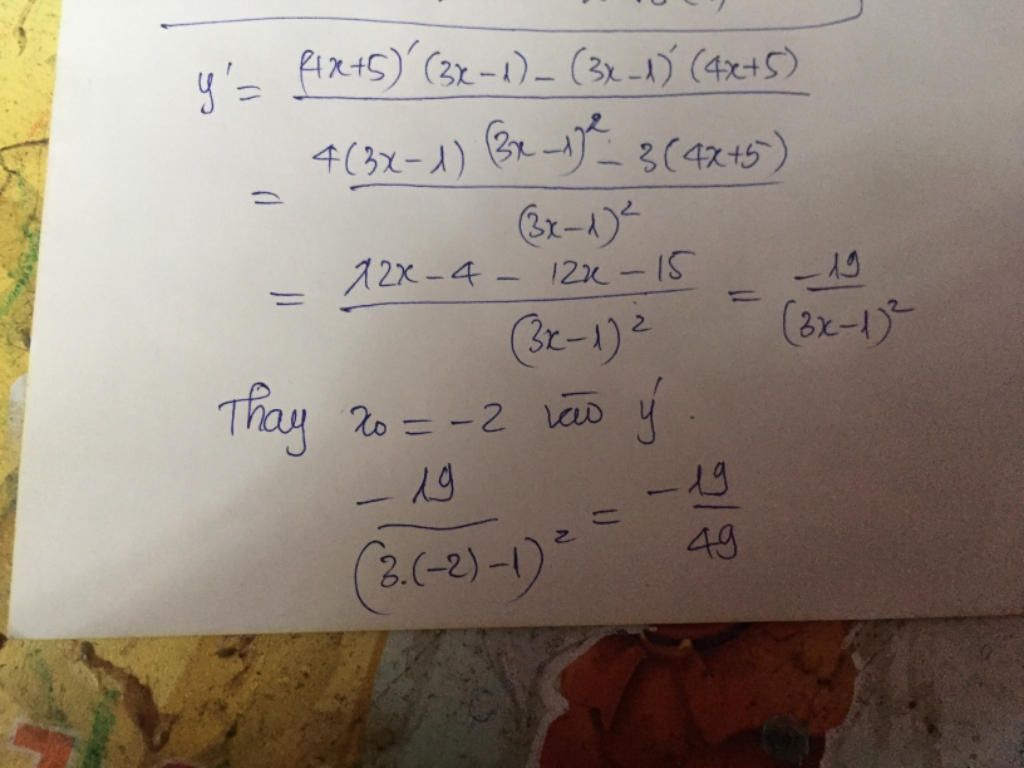 y' = (4x+5)' (3x-1) - (3x-1)' (4x+5)
(3x-1)²
= 4(3x-1) - 3(4x+5)
(3x-1)²
= 12x - 4 - 12x - 15 = -19
(3x-1)² (3x-1)²
Thay x₀ = -2 vào y'.
-19 = -19
(3.(-2)-1)² 49